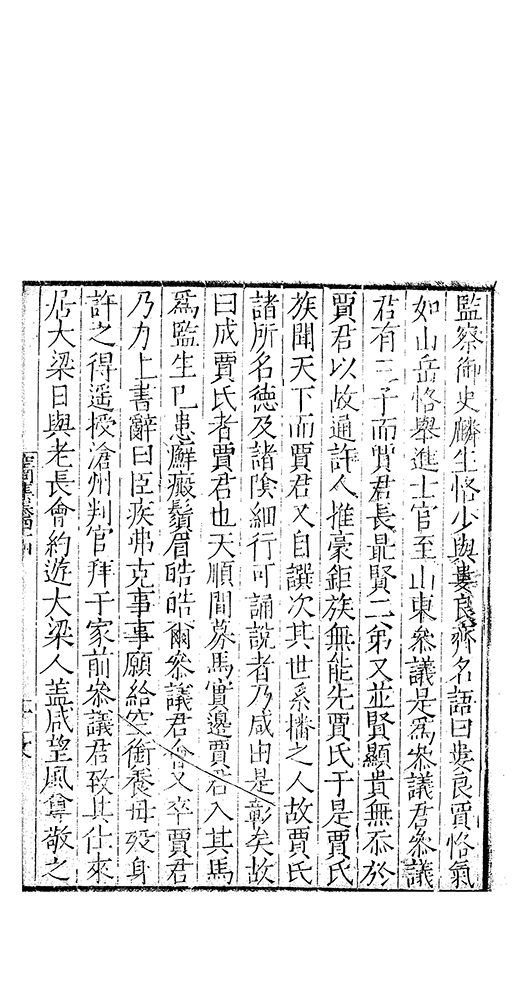 監察御史麟生恪少與婁良齊名語曰婁良賈恪氣
如山岳恪舉進士官至山東叅議是爲叅議君叅議
君有三子而賈君長最賢二弟又並賢顯貴無忝於
賈君以故通許人推豪鉅族無能先賈氏于是賈氏
族聞天下而賈君又自譔次其世系播之人故賈氏
諸所名德及諸陰細行可誦說者乃咸由是彰矣故
曰成賈氏者賈君也天順間募馬實邊賈君入其馬
爲監生已患癬癜鬚眉皓皓爾叅議君會又卒賈君
乃力上書辭曰臣疾弗克事事願給空銜養母歿身
許之得遥授滄州判官拜于家前叅議君致其仕來
居大梁日與老長會約遊大梁人盖咸望風尊敬之